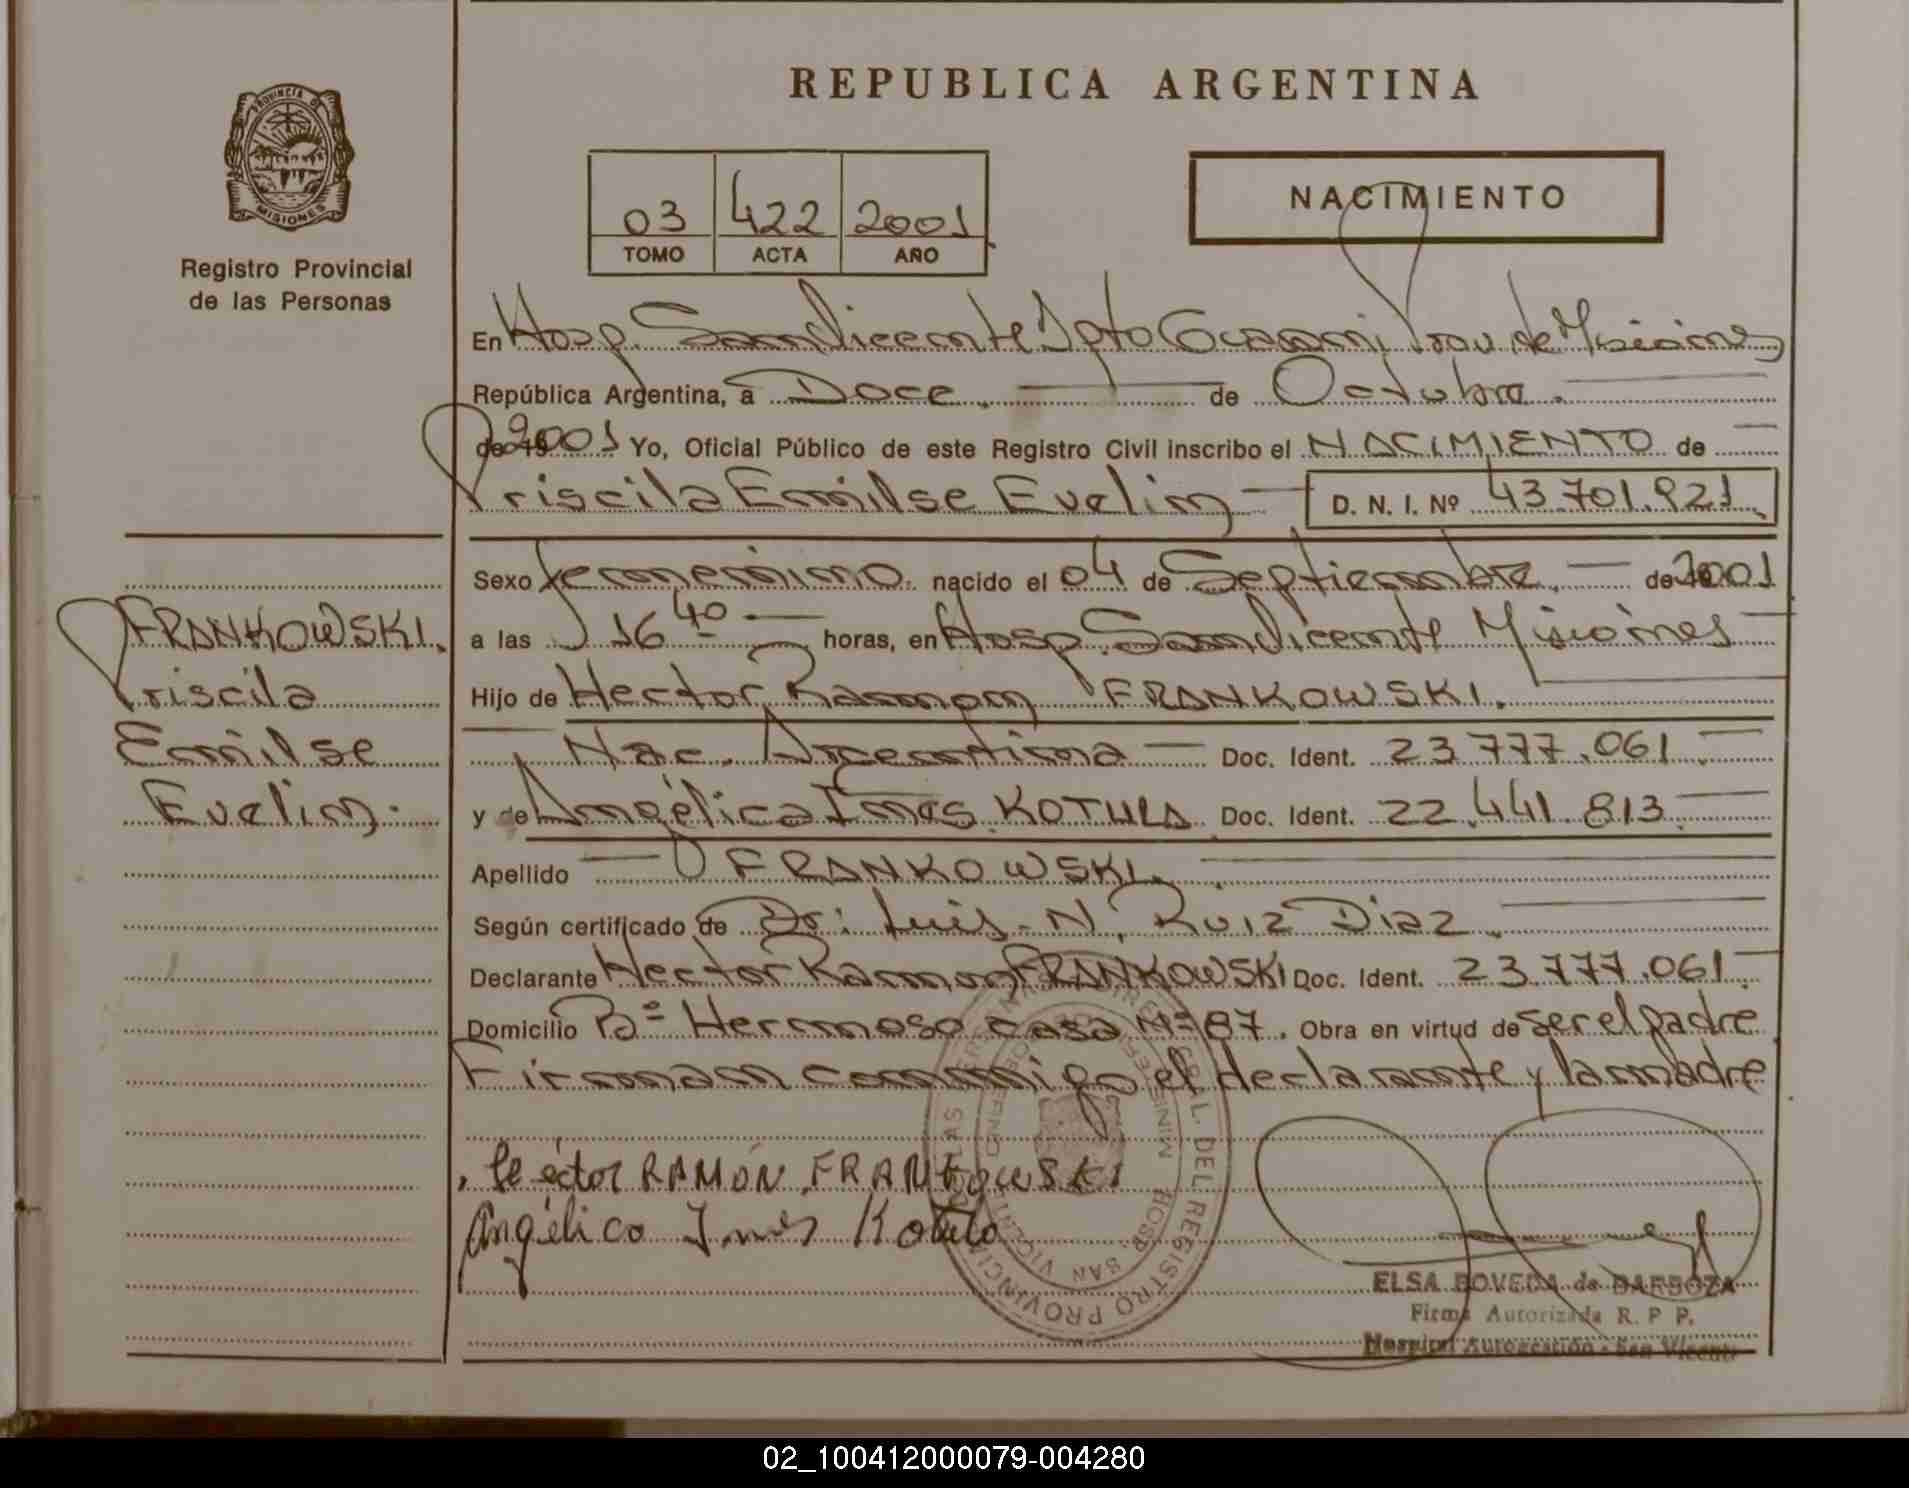 REPUBLICA ARGENTINA
PROVINCIA DE
MISIONES
Registro Provincial
de las Personas
03 422 2001
TOMO ACTA AÑO
NACIMIENTO
En Hosp. San Vicente Dpto Guarani, Prov. de Misiones
República Argentina, a Doce. de Octubre.
de 2001 Yo, Oficial Público de este Registro Civil inscribo el NACIMIENTO de
Priscila Emilse Evelin D. N. I. Nº 43.701.921
Sexo femenino. nacido el 04 de Septiembre. de 2001
a las 16 40 horas, en Hosp. San Vicente Misiones
Hijo de Hector Ramon FRANKOWSKI.
Nac. Argentina Doc. Ident. 23.777.061
y de Angélica Ines KOTULA Doc. Ident. 22.441.813
Apellido FRANKOWSKI.
Según certificado de Dr: Luis N. Ruiz Diaz.
Declarante Hector Ramon FRANKOWSKI Doc. Ident. 23.777.061
Domicilio Bº Hermoso casa Nº 87. Obra en virtud de ser el padre
Firman conmigo el declarante y la madre
FRANKOWSKI.
Priscila
Emilse
Evelin.
Héctor RAMÓN FRANKOWSKI
Angélica Ines Kotula
GRAL. DEL REGISTRO PROVINCIAL LAS
HOSP. SAN VICENTE
ELSA BOVEDA de BARBOZA
Firma Autorizada R. P. P.
Hospital Autogestión - San Vicente
02_100412000079-004280